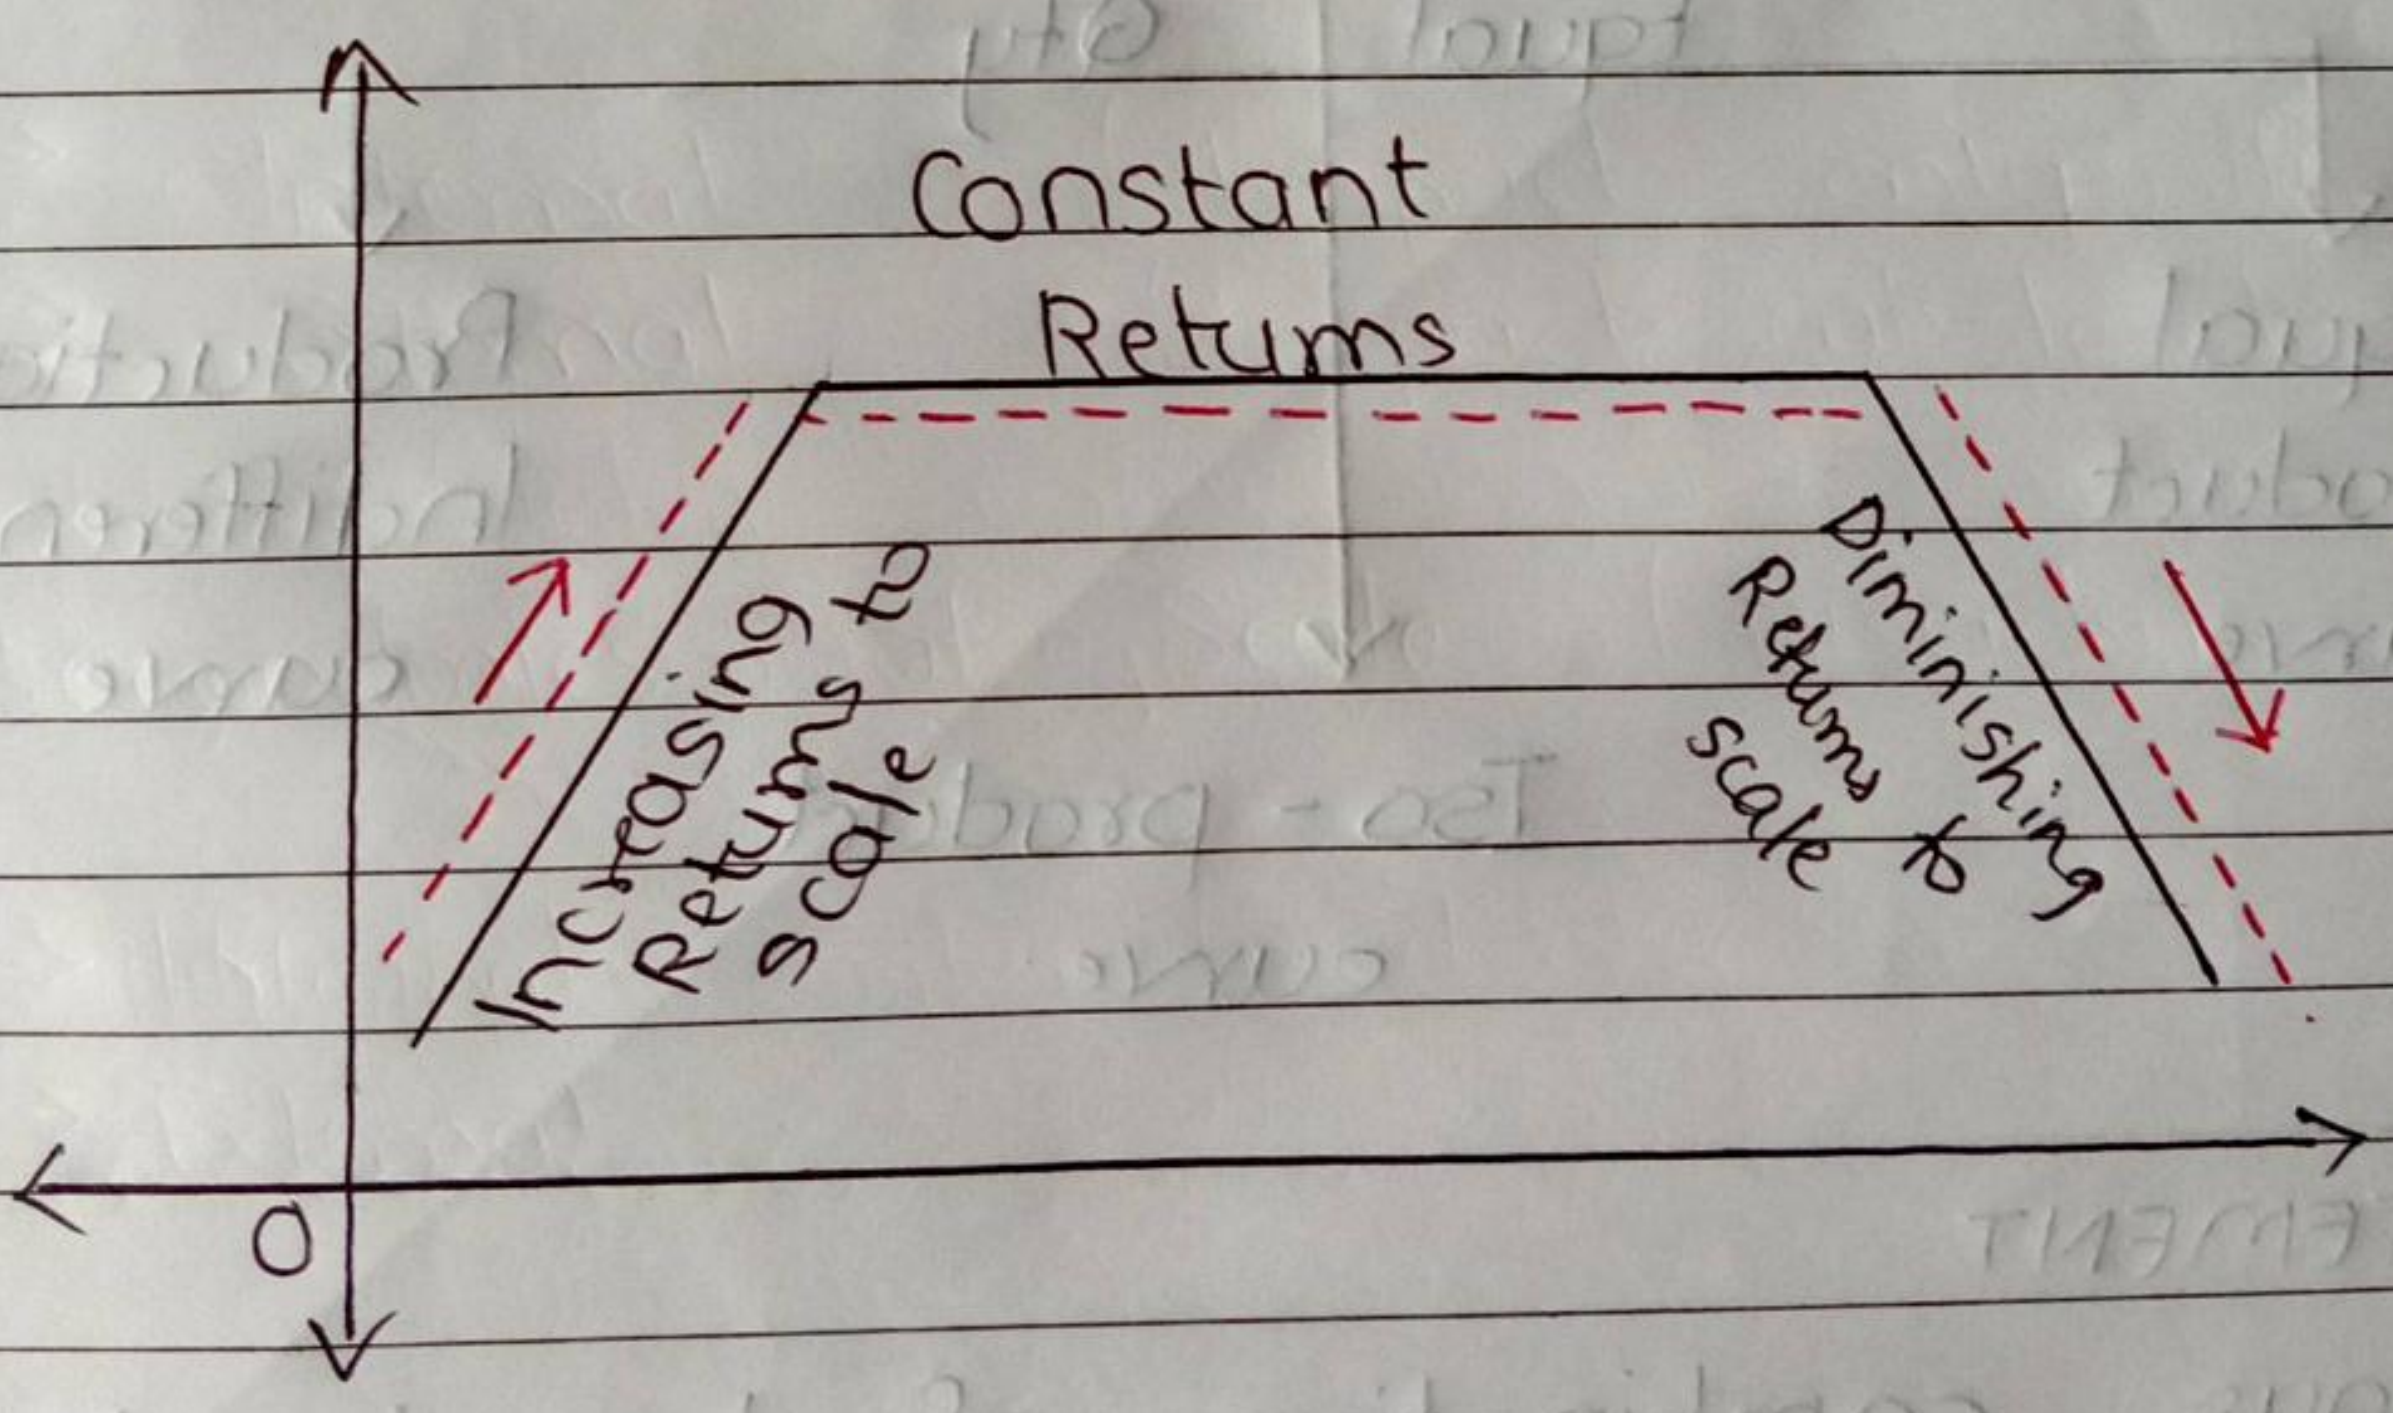 Constant
Returns
Increasing
Returns to
scale
Diminishing
Returns to
scale
O